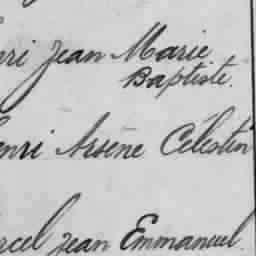 ri Jean Marie
Baptiste.
enri Arsène Célestin
rcel Jean Emmanuel.